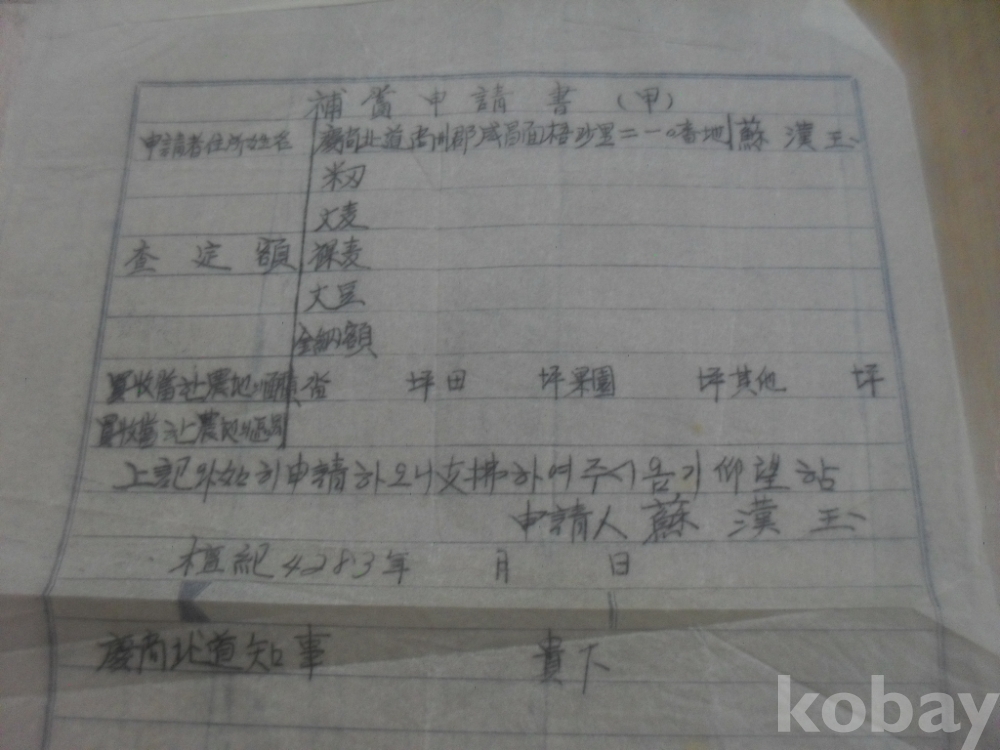 補償申請書(甲)
申請者住所姓名 慶尚北道尚州郡咸昌面梧沙里二一0番地 蘇漢玉
籾
大麦
査定額 裸麦
大豆
金納額
買收當한 農地의 面積 畓 坪 田 坪 果園 坪 其他 坪
買收當한 農地의
上記와 如히 申請하오니 支拂하여 주시옵기 仰望함
申請人 蘇漢玉
檀紀4283年 月 日
慶尚北道知事 貴下
kobay